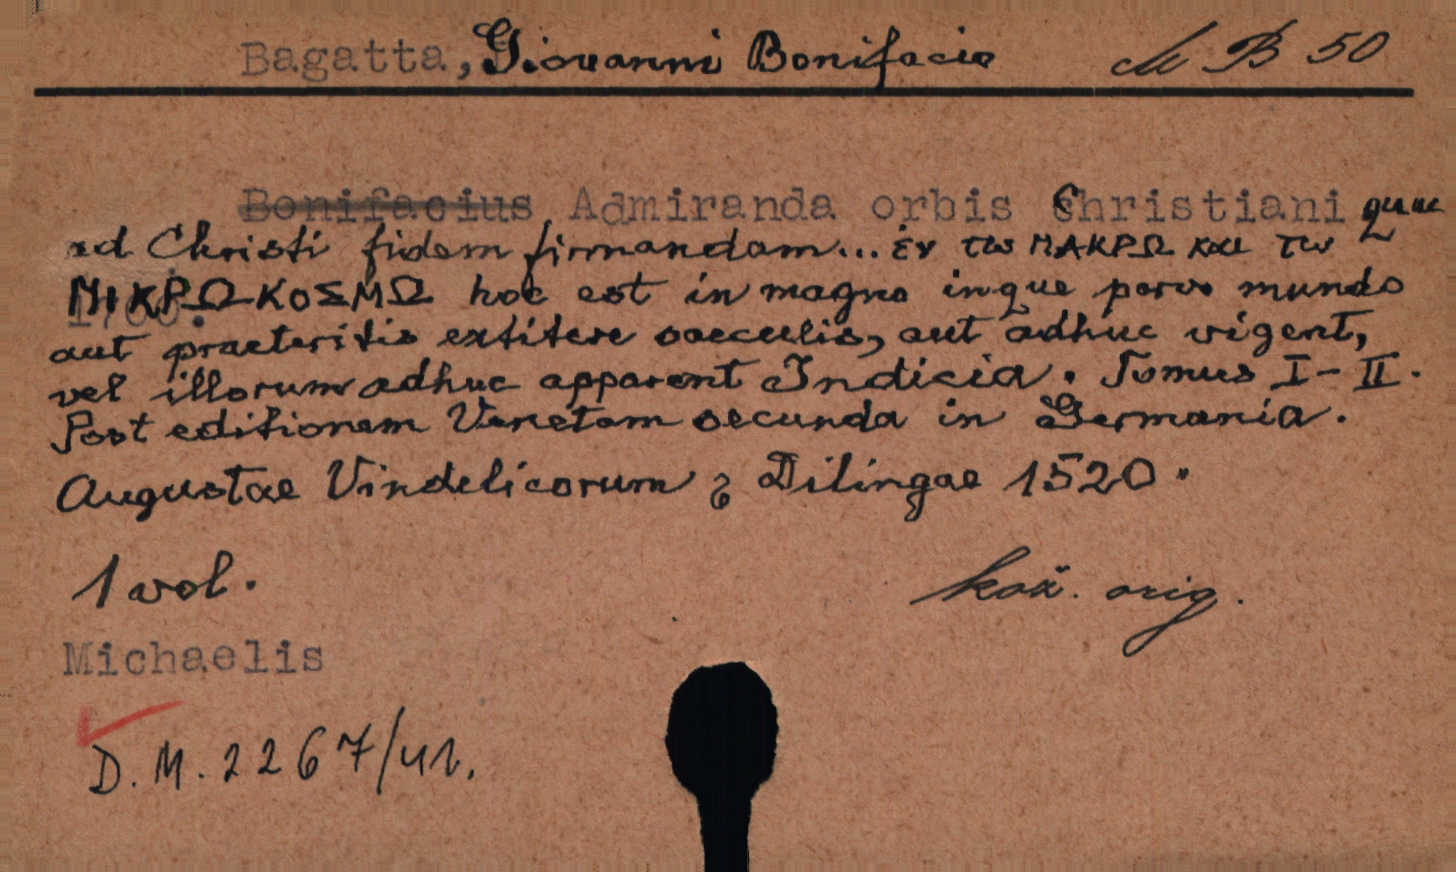 Bagatta, Giovanni Bonifacio M B 50
Bonifacius Admiranda orbis Christiani quae
ad Christi fidem firmandam... ἐν τω ΜΑΚΡΩ και τω
ΜΙΚΡΩ-ΚΟΣΜΩ hoc est in magno inque parvo mundo
aut praeteritis extitere saeculis, aut adhuc vigent,
vel illorum adhuc apparent Indicia. Tomus I-II.
Post editionem Venetam secunda in Germania.
Augustae Vindelicorum & Dilingae 1520.
1 vol. kož. orig.
Michaelis
D.M. 2267/41.